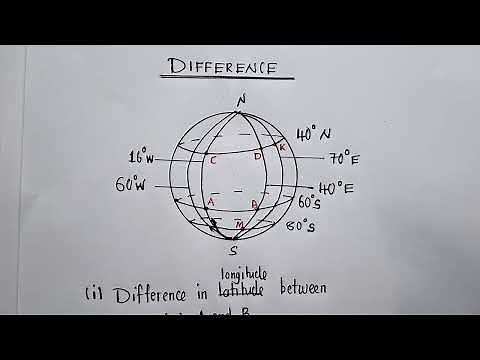 DIFFERENCE
N
40°N
K
16°W
C
D
70°E
60°W
40°E
A
B
60°S
M
80°S
S
longitude
(i) Difference in latitude between
A and B